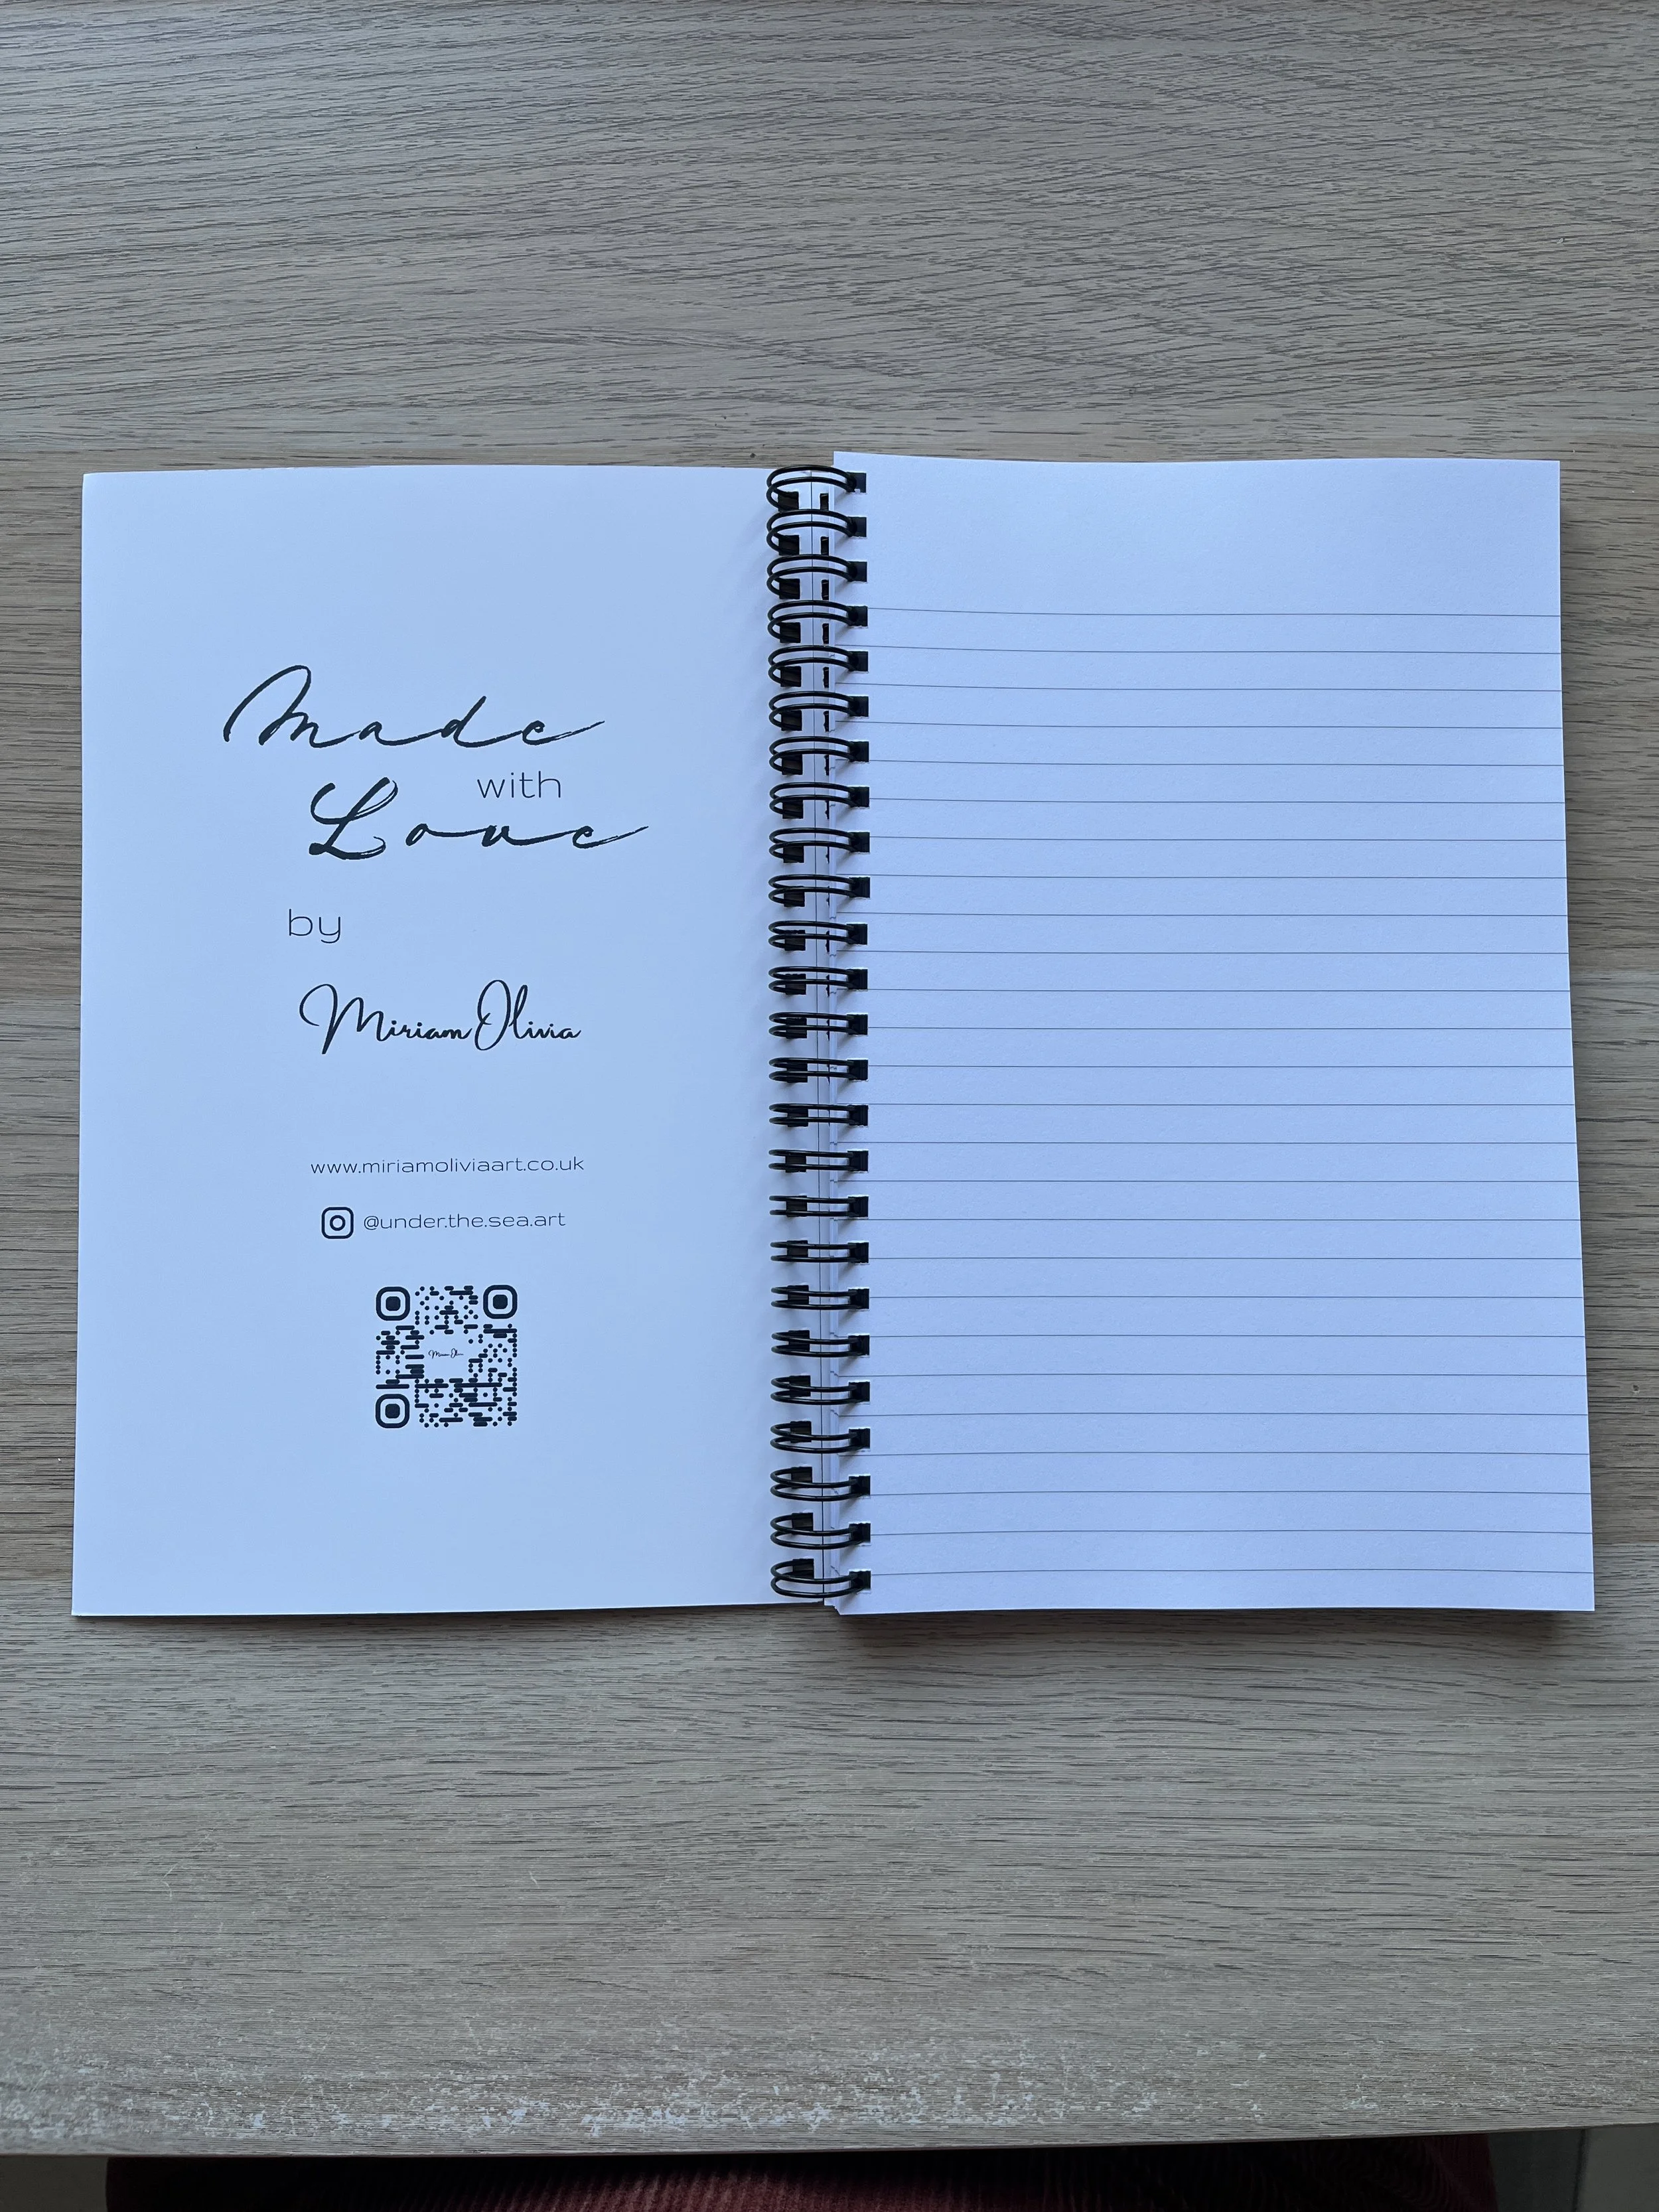 Made
with
Love
by
Miriam Olivia
www.miriamoliviaart.co.uk
@under.the.sea.art
Miriam Olivia